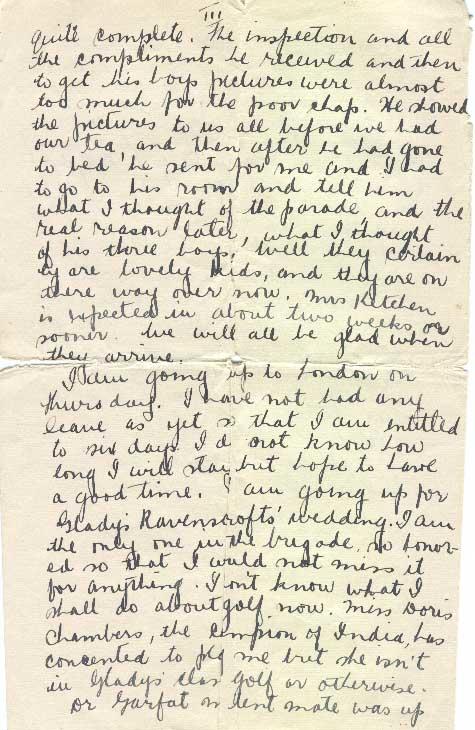 III
quite complete. The inspection and all
the compliments he received and then
to get his boys pictures were almost
too much for the poor chap. He showed
the pictures to us all before we had
our tea, and then after he had gone
to bed he sent for me and I had
to go to his room and tell him
what I thought of the parade, and the
real reason later, what I thought
of his three boys, well they certain
ly are lovely kids, and they are on
there way over now. Mrs Kitchen
is expected in about two weeks or
sooner. We will all be glad when
they arrive.
I am going up to London on
Thursday. I have not had any
leave as yet so that I am entitled
to six days. I do not know how
long I will stay but hope to have
a good time. I am going up for
Gladys Ravenscrofts' wedding. I am
the only one in the brigade so honor-
ed so that I would not miss it
for anything. I don't know what I
shall do about golf now. Miss Doris
Chambers, the champion of India, has
concented to play me but she isn't
in Gladys class golf or otherwise.
Dr Garfat my tent mate was up